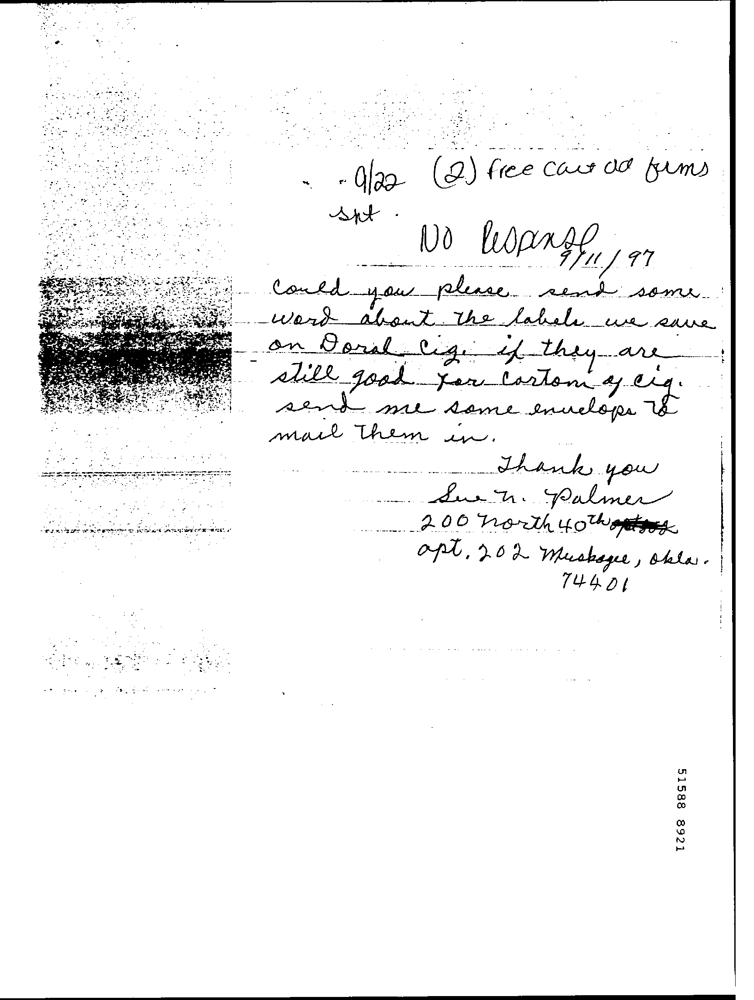 - 9/22 (2) free forms
snt.
No Response
9/11/97
Could you please send some
word about the labels we save
on Doral Cig. if they are
still good for Cartom of cig.
send me some envelops to
mail them in.
Thank you
Sue N. Palmer
200 North 40th
apt. 202 Muskogee, Okla.
74401
51588 8921